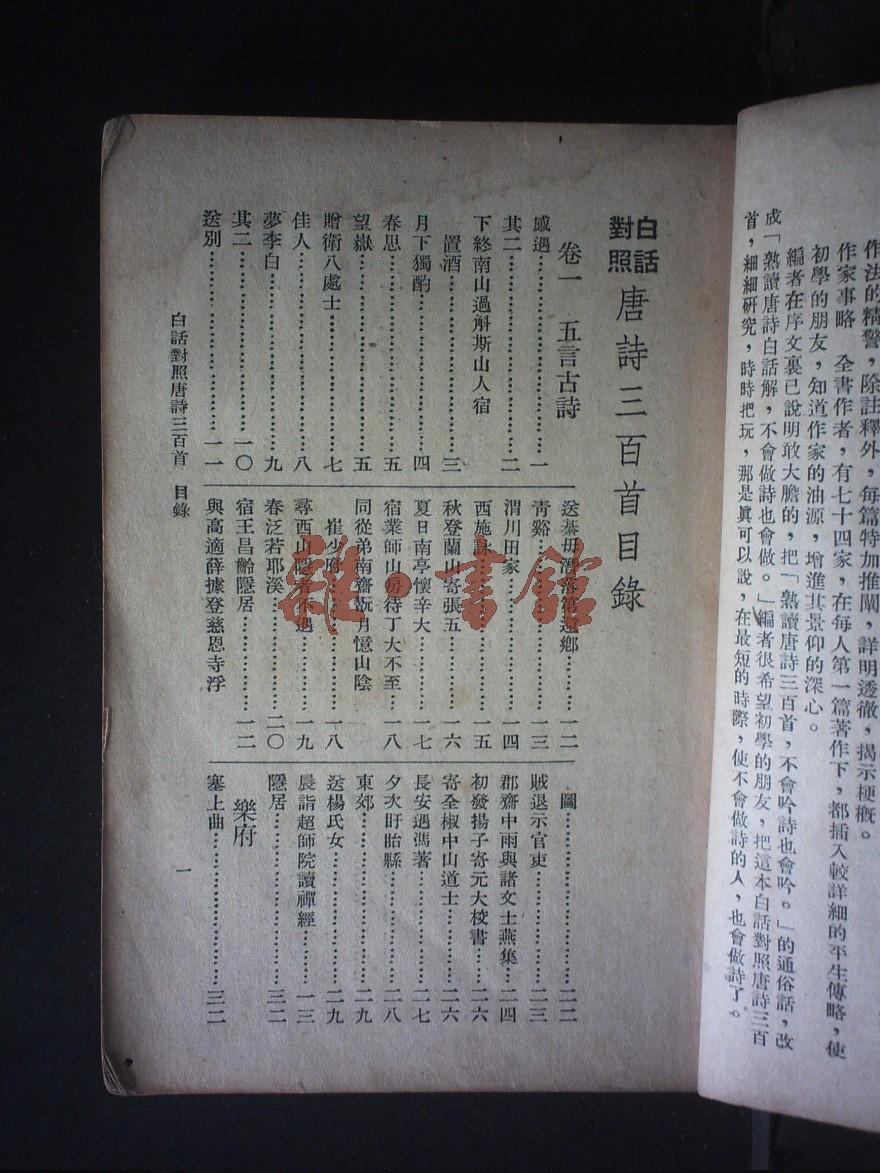 作法的精警，除註釋外，每篇特加推闡，詳明透徹，揭示梗概。
作家事略　全書作者，有七十四家，在每人第一篇著作下，都插入較詳細的平生傳略，使
初學的朋友，知道作家的油源，增進其景仰的深心。
編者在序文裏已說明敢大膽的，把「熟讀唐詩三百首，不會吟詩也會吟。」的通俗話，改
成「熟讀唐詩白話解，不會做詩也會做。」編者很希望初學的朋友，把這本白話對照唐詩三百
首，細細研究，時時把玩，那是眞可以說，在最短的時際，使不會做詩的人，也會做詩了。
白話對照 唐詩三百首目錄
卷一　五言古詩
感遇……一
其二……二
下終南山過斛斯山人宿
置酒……三
月下獨酌……四
春思……五
望嶽……五
贈衛八處士……七
佳人……八
夢李白……九
其二……一〇
送別……一一
送綦毋潛落第還鄉……一二
靑谿……一三
渭川田家……一四
西施詠……一五
秋登蘭山寄張五……一六
夏日南亭懷辛大……一七
宿業師山房待丁大不至…一八
同從弟南齋翫月憶山陰
崔少府……一八
尋西山隱者不遇……一九
春泛若耶溪……二〇
宿王昌齡隱居……一二
與高適薛據登慈恩寺浮
圖……二二
賊退示官吏……二三
郡齋中雨與諸文士燕集…二四
初發揚子寄元大校書…二六
寄全椒中山道士……二六
長安遇馮著……二七
夕次盱眙縣……二八
東郊……二九
送楊氏女……二九
晨詣超師院讀禪經……一三
隱居……三二
樂府
塞上曲……三二
白話對照唐詩三百首　目錄
一
雜·書館